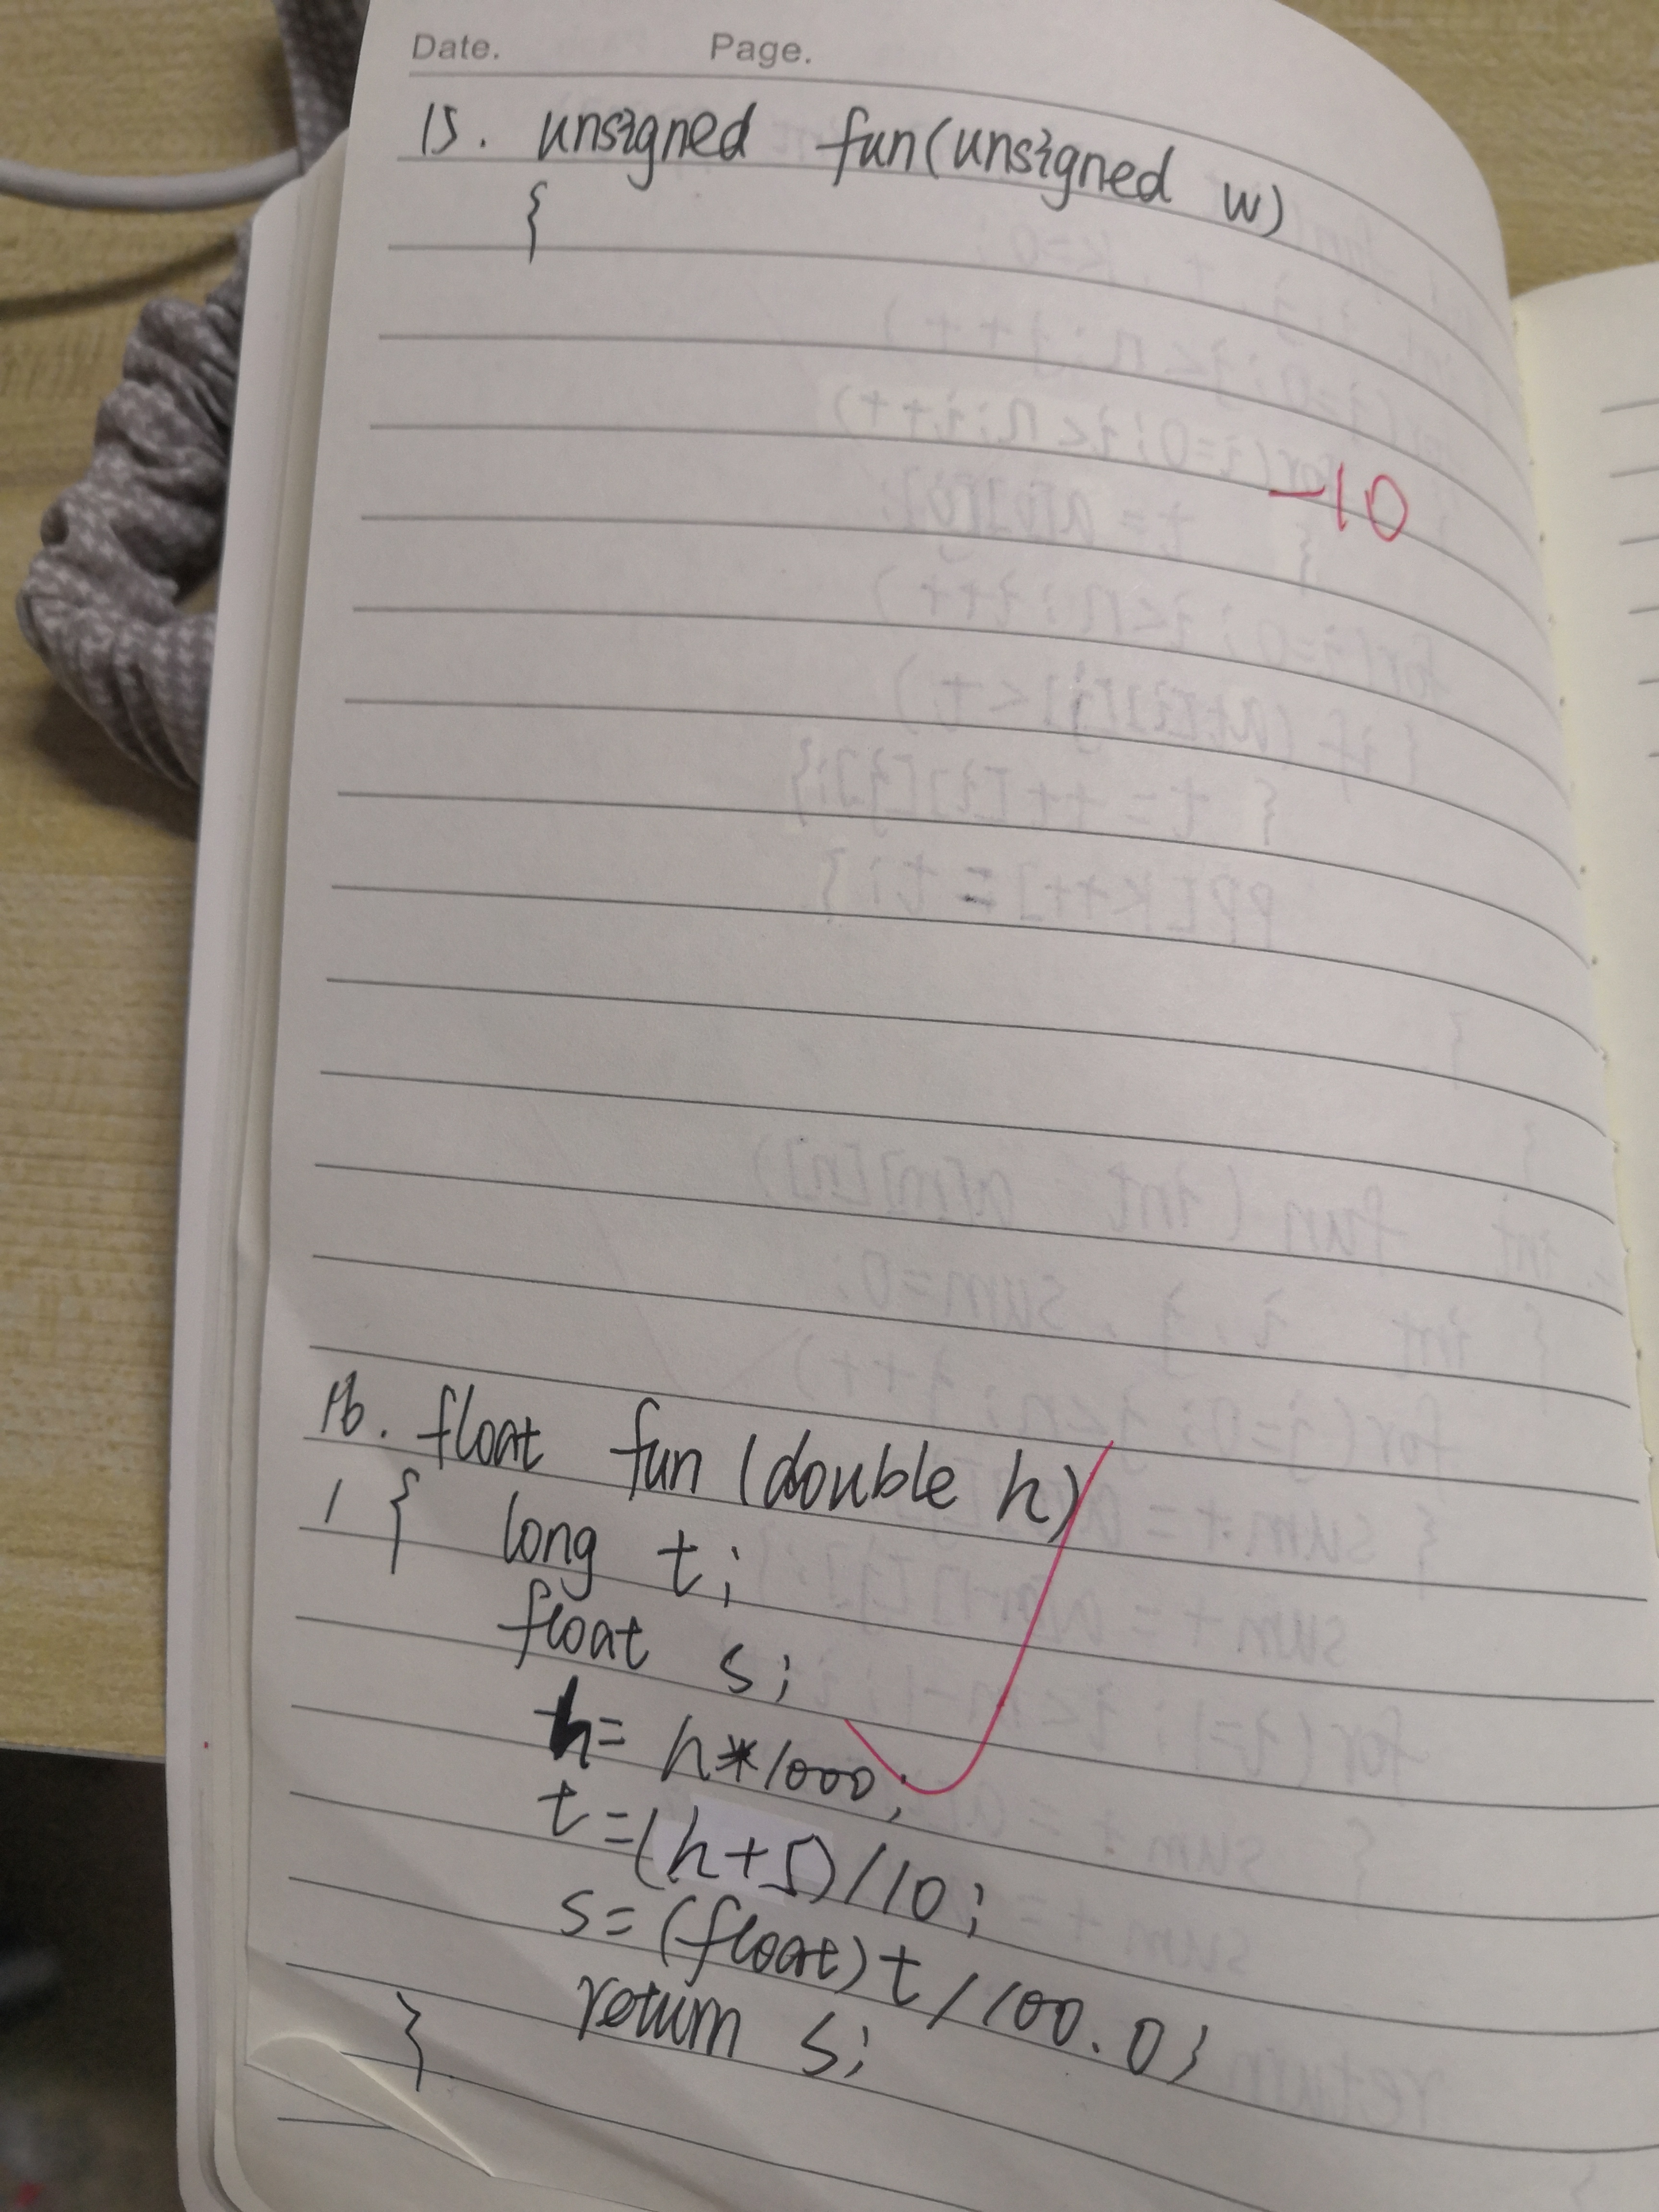 Date. Page.
15. unsigned fun(unsigned w)
{
-10
16. float fun(double h)
{ long t;
float s;
h= h*1000;
t=(h+5)/10;
s=(float)t/100.0;
return s;
}